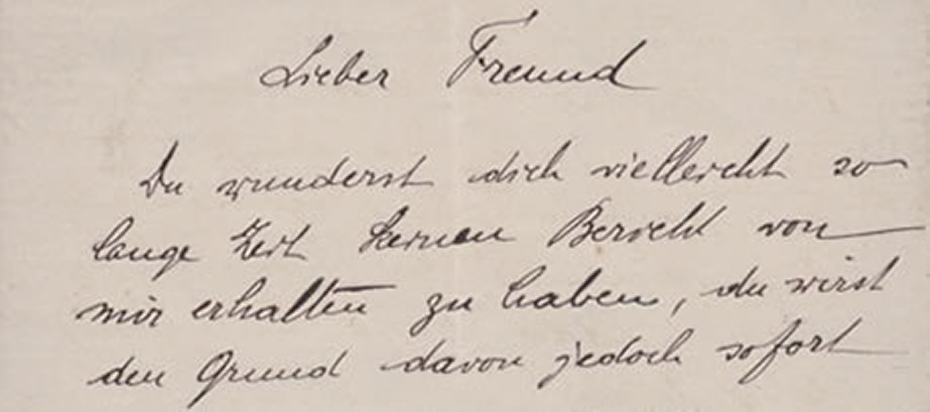 Lieber Freund
Du wunderst dich vielleicht so
lange Zeit keinen Bericht von
mir erhalten zu haben, du wirst
den Grund davon jedoch sofort